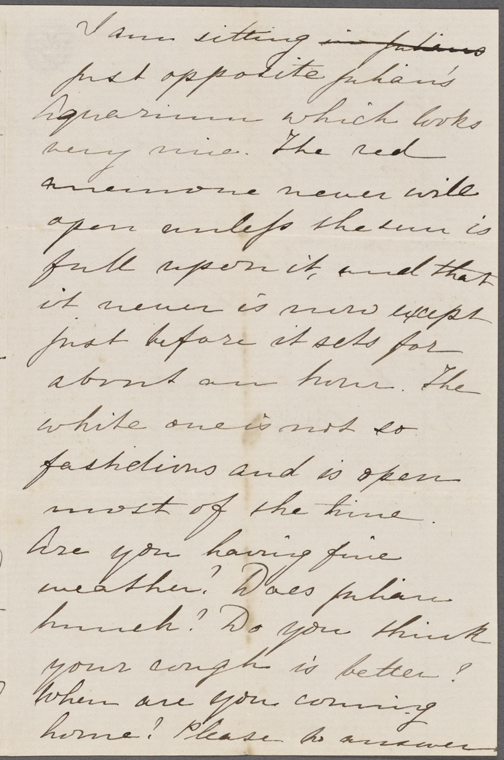 I am sitting in Julians
just opposite Julian's
Aquarium which looks
very nice. The red
anemone never will
open unless the sun is
full upon it, and that
it never is now except
just before it sets for
about an hour. The
white one is not so
fastidious and is open
most of the time.
Are you having fine
weather? Does Julian
hunch? Do you think
your cough is better?
When are you coming
home? Please to answer